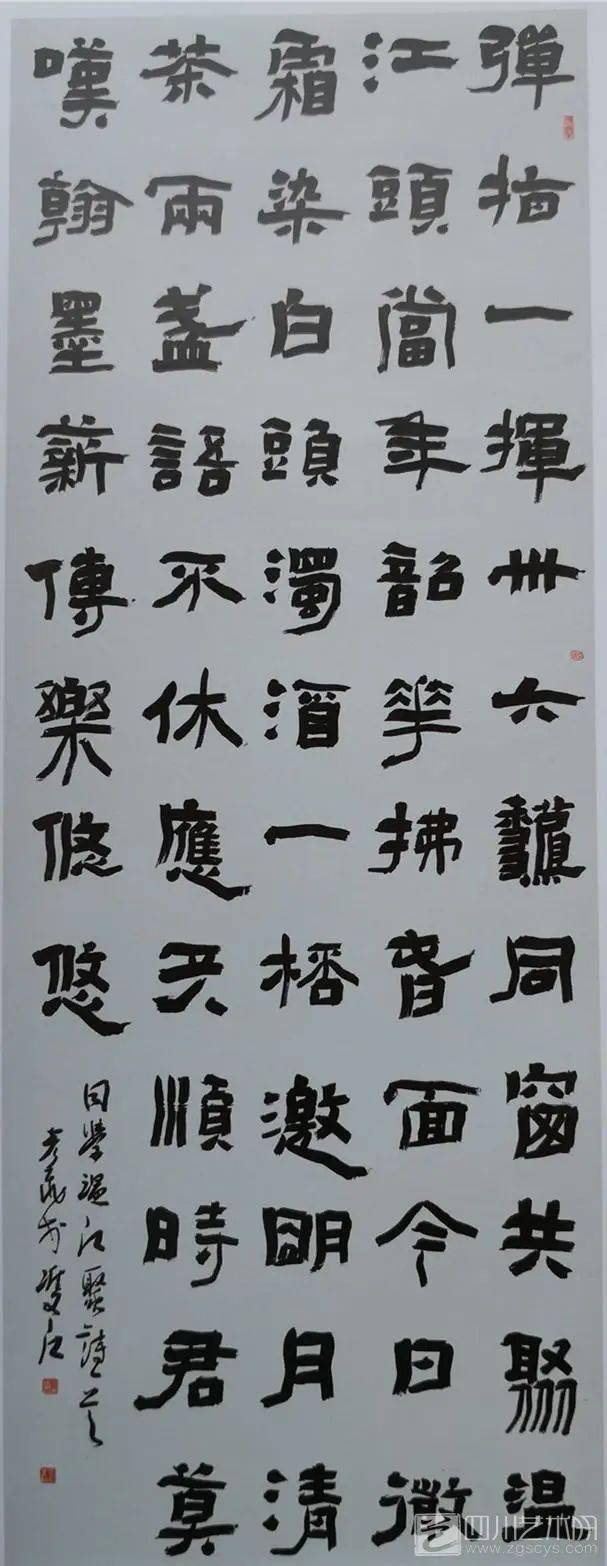 彈指一揮卅六龝同窗共聚溫
江頭當年韶華拂春面今日微
霜染白頭濁酒一桮邀朙月清
茶兩盞語不休應天順時君莫
嘆翰墨薪傳樂悠悠
同學溫江聚詩
雙江
四川艺术网
www.zgscys.com